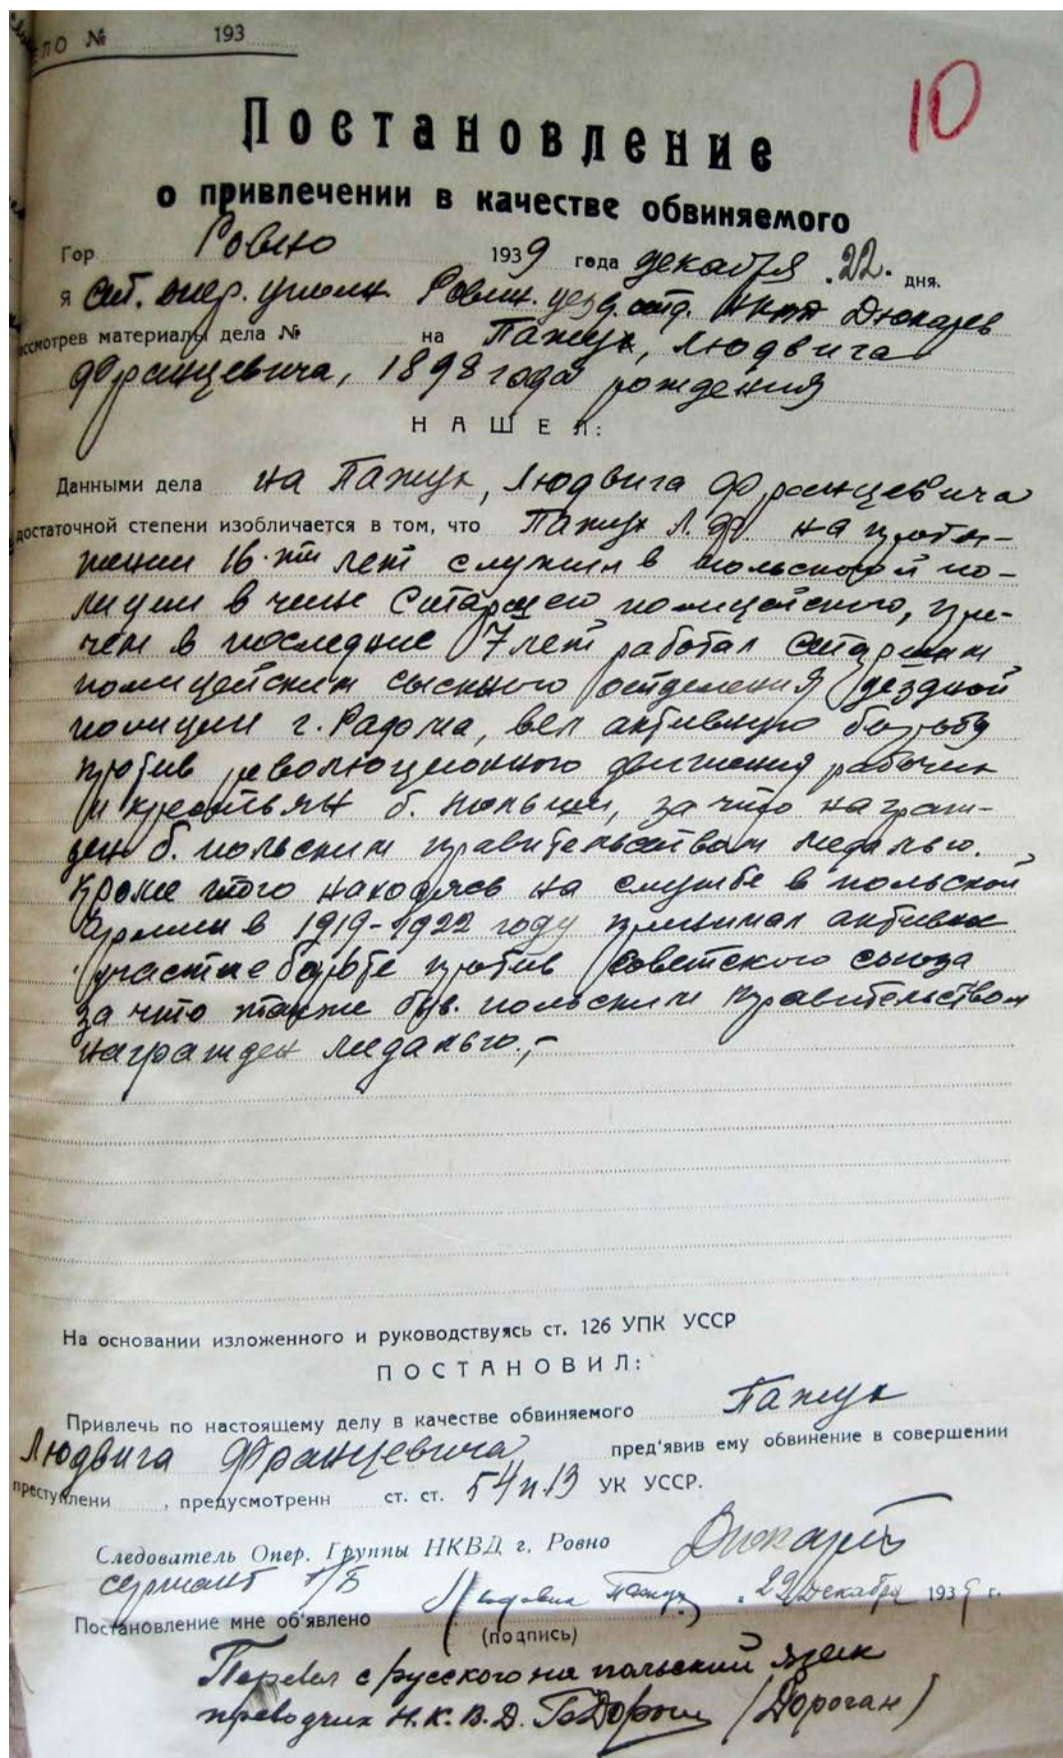 ЕЛО № 193
10
Постановление
о привлечении в качестве обвиняемого
Гор Ровно 1939 года декабря "22" дня.
Я ст. опер. уполн. Ровен. уезд. отд. НКВД Дюкарев
ассмотрев материалы дела № на Пажук, Людвига
Францевича, 1898 года рождения
НАШЕЛ:
Данными дела на Пажук, Людвига Францевича
достаточной степени изобличается в том, что Пажук Л. Ф. на протя-
жении 16-ти лет служил в польской по-
лиции в чине Старшего полицейского, при-
чем в последние 7 лет работал старшим
полицейским сыскного отделения уездной
полиции г. Радома, вел активную борьбу
против революционного движения рабочих
и крестьян б. Польши, за что награж-
ден б. польским правительством медалью.
Кроме этого находясь на службе в польской
армии в 1919-1922 году принимал активное
участие борьбе против Советского союза
за что также быв. польским правительством
награжден медалью.-
На основании изложенного и руководствуясь ст. 126 УПК УССР
ПОСТАНОВИЛ:
Привлечь по настоящему делу в качестве обвиняемого Пажук
Людвига Францевича пред'явив ему обвинение в совершении
преступлени , предусмотренн ст. ст. 54 п 13 УК УССР.
Следователь Опер. Группы НКВД г. Ровно
сержант Г/Б
Постановление мне об'явлено Людвик Пажук "22" декабря 1939 г.
(подпись)
Перевел с русского на польский язык
переводчик Н.К.В.Д. (Дороган)